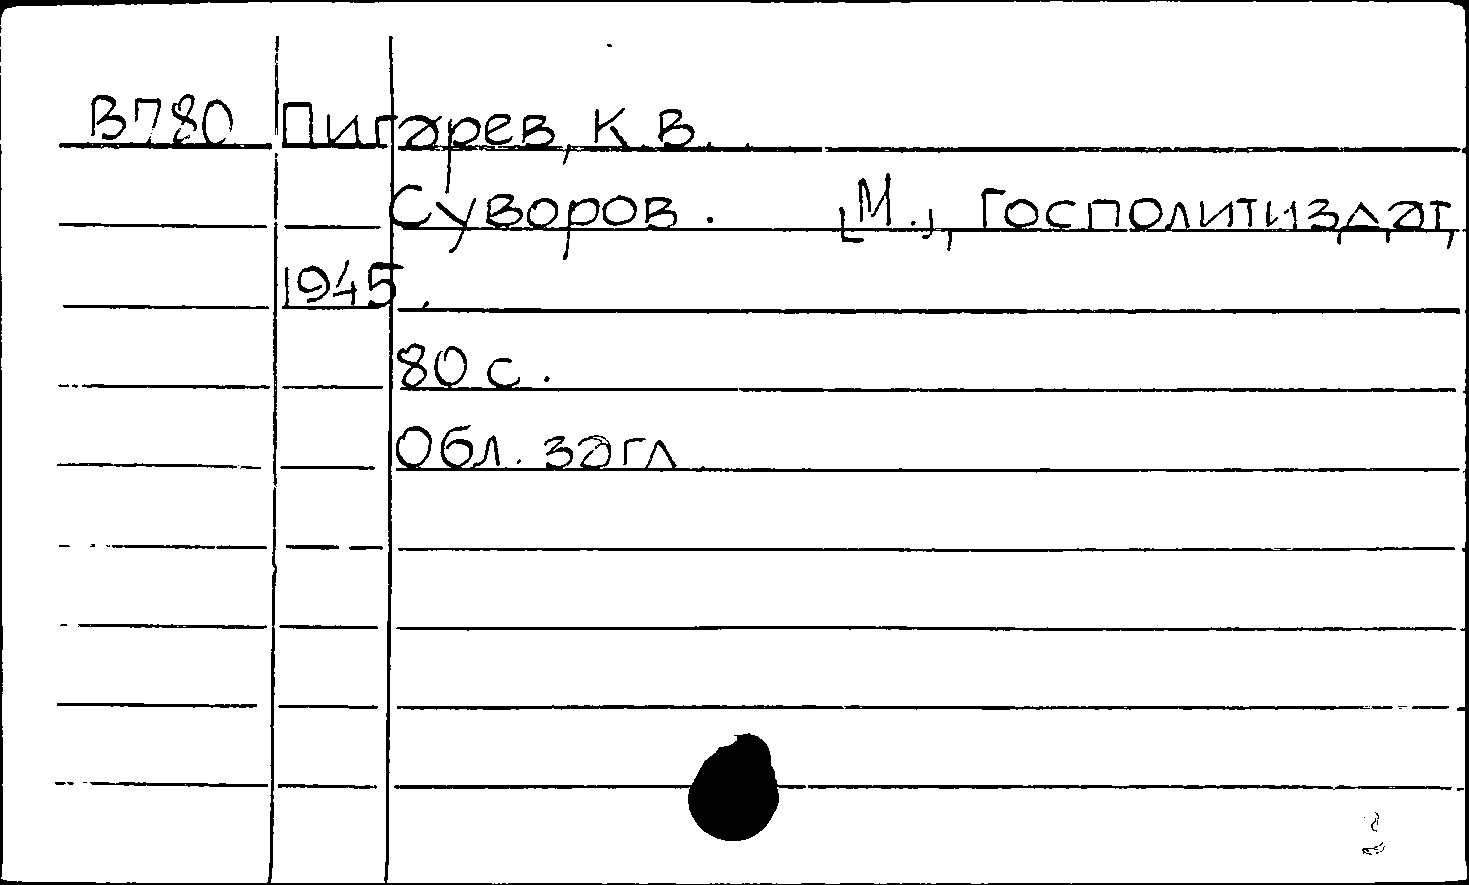 В780 Пигарев, К.В.
Суворов. [М.], Госполитиздат,
1945.
80 с.
Обл. загл